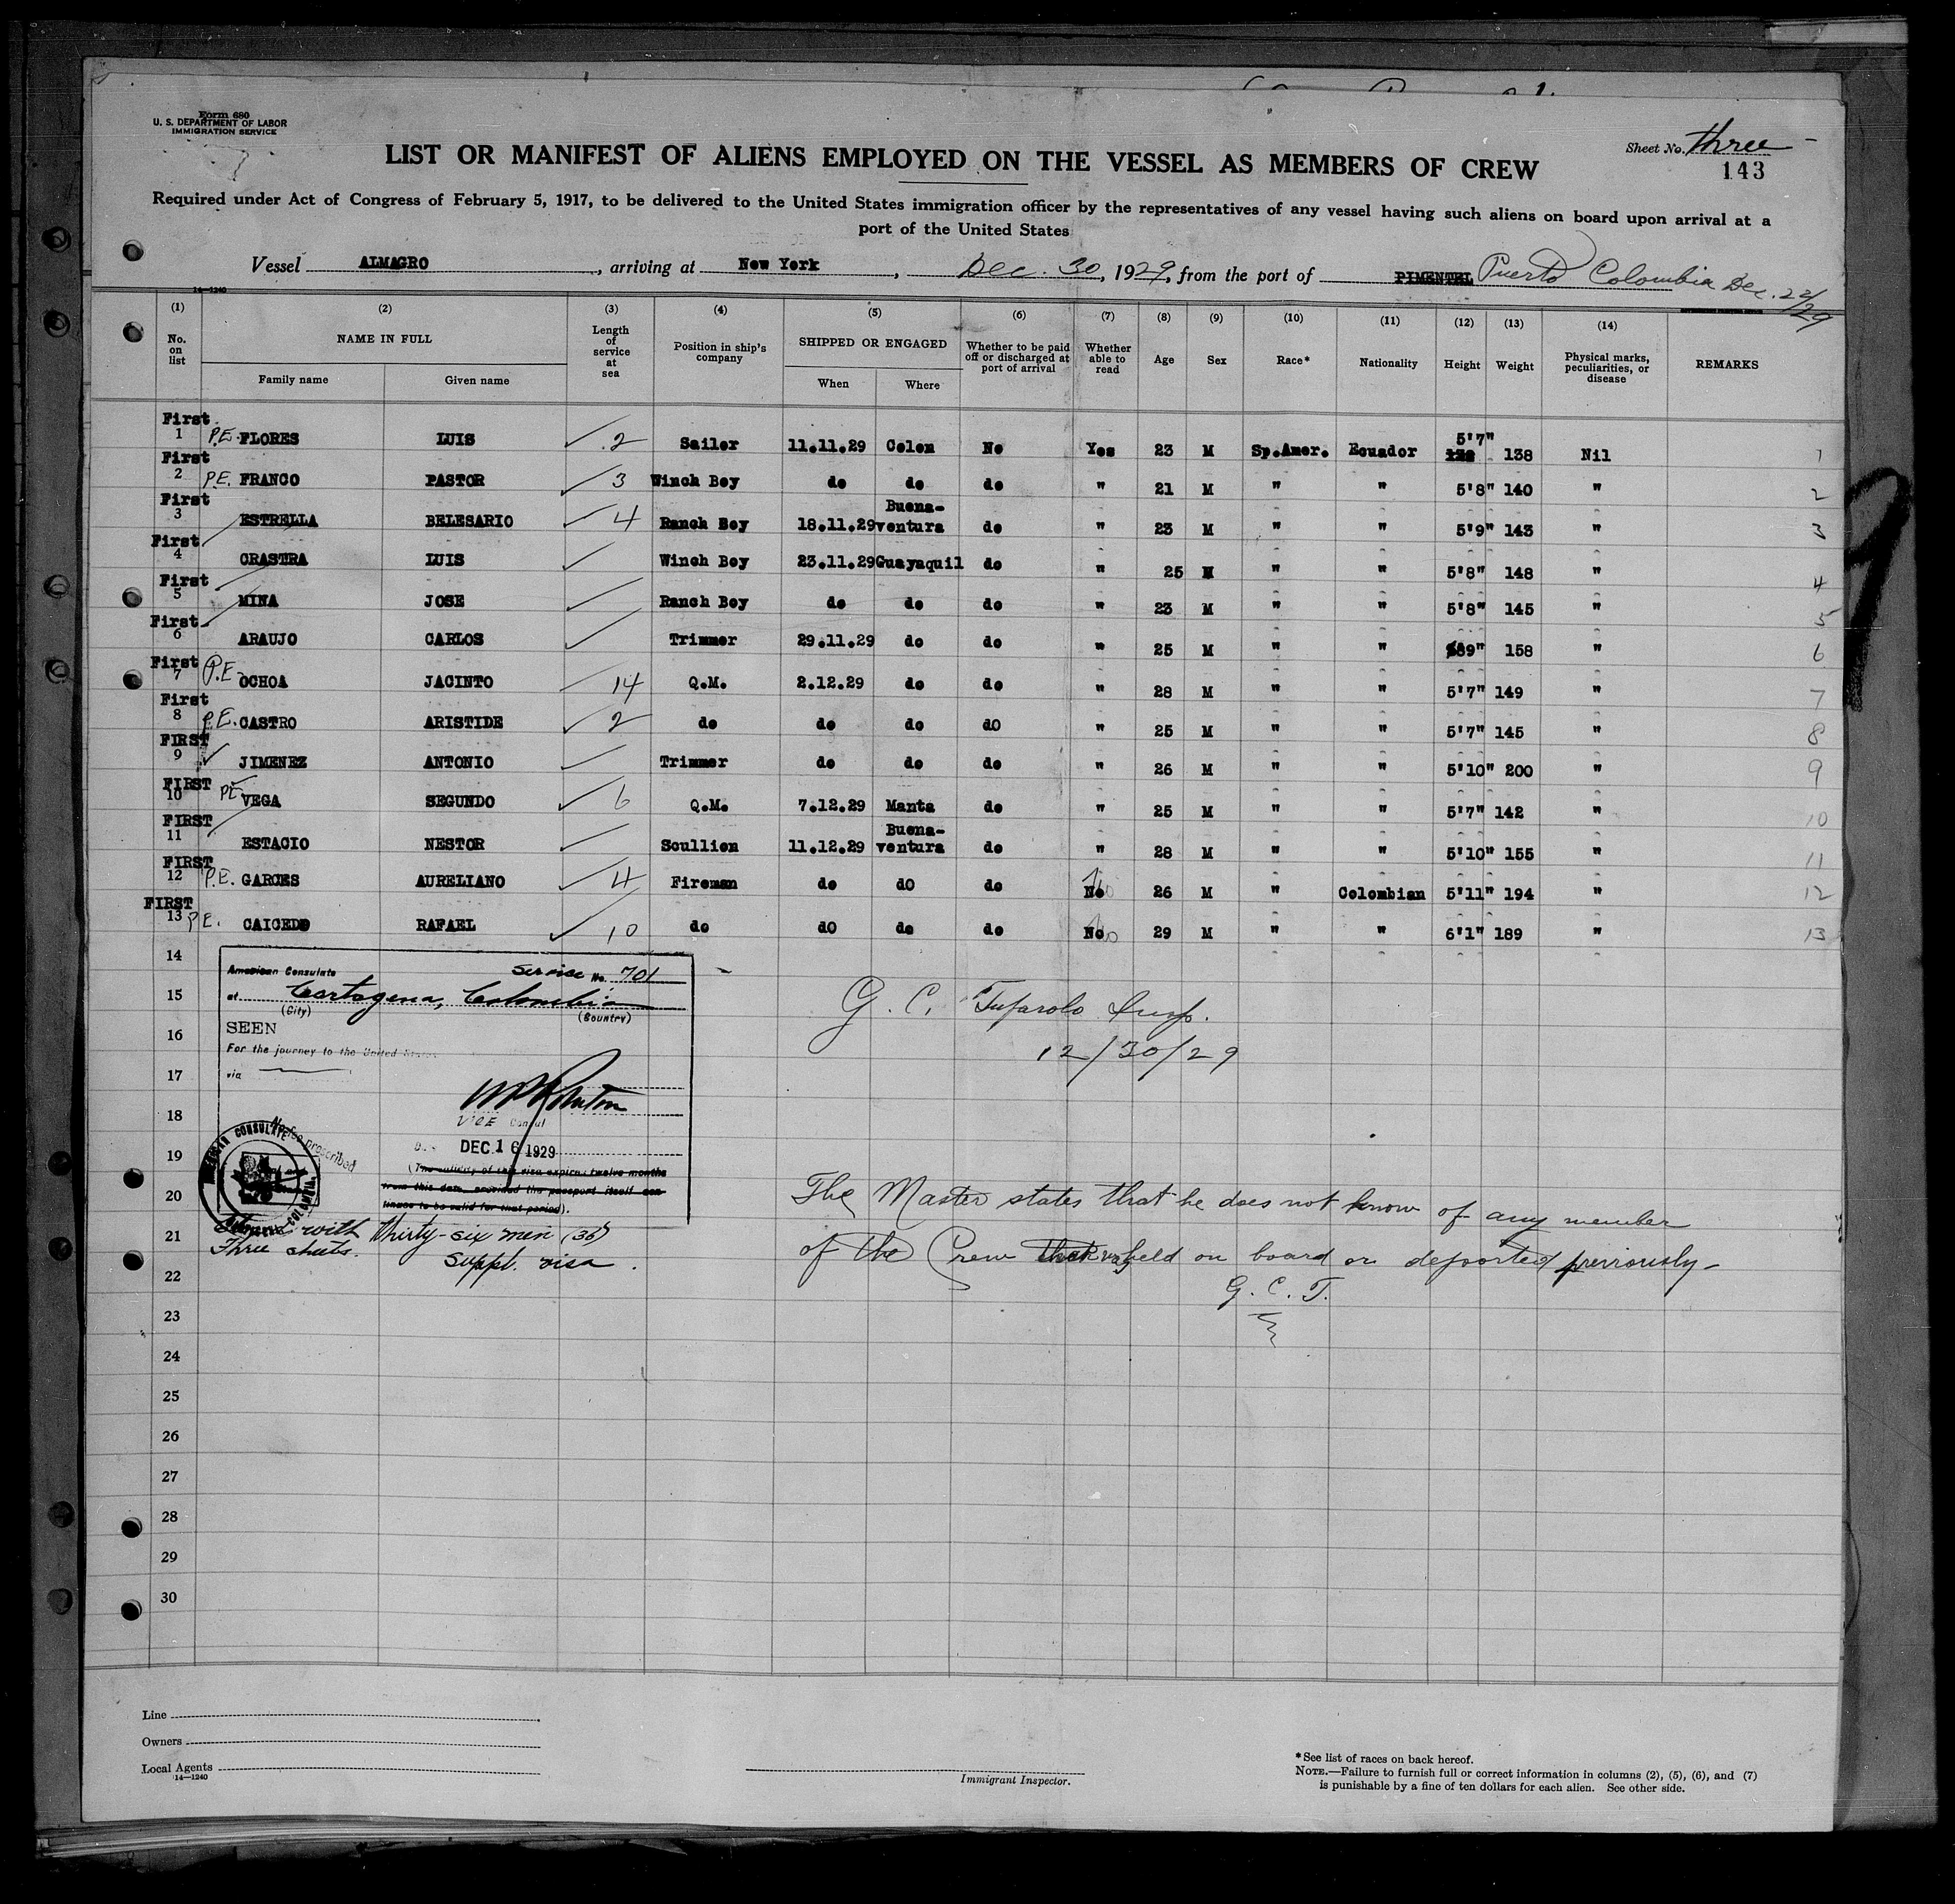 Form 680
U. S. DEPARTMENT OF LABOR
IMMIGRATION SERVICE
Sheet No. three
143
LIST OR MANIFEST OF ALIENS EMPLOYED ON THE VESSEL AS MEMBERS OF CREW
Required under Act of Congress of February 5, 1917, to be delivered to the United States immigration officer by the representatives of any vessel having such aliens on board upon arrival at a
port of the United States
Vessel ALMAGRO, arriving at New York, Dec. 30, 1929, from the port of PIMENTEL Puerto Colombia Dec. 22/29
14-1240
(1) (2) (3) (4) (5) (6) (7) (8) (9) (10) (11) (12) (13) (14)
No. on list NAME IN FULL Length of service at sea Position in ship's company SHIPPED OR ENGAGED Whether to be paid off or discharged at port of arrival Whether able to read Age Sex Race* Nationality Height Weight Physical marks, peculiarities, or disease REMARKS
Family name Given name When Where
First 1 P.E. FLORES LUIS 2 Sailor 11.11.29 Colon No Yes 23 M Sp.Amer. Ecuador 5'7" 138 Nil 1
First 2 P.E. FRANCO PASTOR 3 Winch Boy do do do " 21 M " " 5'8" 140 " 2
First 3 ESTRELLA BELESARIO 4 Ranch Boy 18.11.29 Buena-ventura do " 23 M " " 5'9" 143 " 3
First 4 CRASTRA LUIS Winch Boy 23.11.29 Guayaquil do " 25 M " " 5'8" 148 " 4
First 5 MINA JOSE Ranch Boy do do do " 23 M " " 5'8" 145 " 5
First 6 ARAUJO CARLOS Trimmer 29.11.29 do do " 25 M " " 9" 158 " 6
First 7 P.E. OCHOA JACINTO 14 Q.M. 2.12.29 do do " 28 M " " 5'7" 149 " 7
First 8 P.E. CASTRO ARISTIDE 2 do do do dO " 25 M " " 5'7" 145 " 8
FIRST 9 JIMENEZ ANTONIO Trimmer do do do " 26 M " " 5'10" 200 " 9
FIRST 10 PE VEGA SEGUNDO 6 Q.M. 7.12.29 Manta do " 25 M " " 5'7" 142 " 10
FIRST 11 ESTACIO NESTOR Scullion 11.12.29 Buena-ventura do " 28 M " " 5'10" 155 " 11
FIRST 12 P.E. GARCES AURELIANO 4 Fireman do dO do No 26 M " Colombian 5'11" 194 " 12
FIRST 13 P.E. CAICEDO RAFAEL 10 do dO do do No 29 M " " 6'1" 189 " 13
14
15
16
17
18
19
20
21
22
23
24
25
26
27
28
29
30
American Consulate Service No. 701
at Cartagena, Colombia
(City) (Country)
SEEN
For the journey to the United States
via
VICE Consul
DEC 16 1929
(The validity of this visa expires twelve months
from this date, provided the passport itself con-
tinues to be valid for that period).
No fee prescribed
AMERICAN CONSULATE
COLOMBIA
with Thirty-six men (36)
Three sheets.
Suppl. visa.
G. C. Tufarolo Insp.
12/30/29
The Master states that he does not know of any member
of the Crew held on board or deported previously-
G. C. T.
Line
Owners
Local Agents
14-1240
Immigrant Inspector.
*See list of races on back hereof.
NOTE.—Failure to furnish full or correct information in columns (2), (5), (6), and (7)
is punishable by a fine of ten dollars for each alien. See other side.